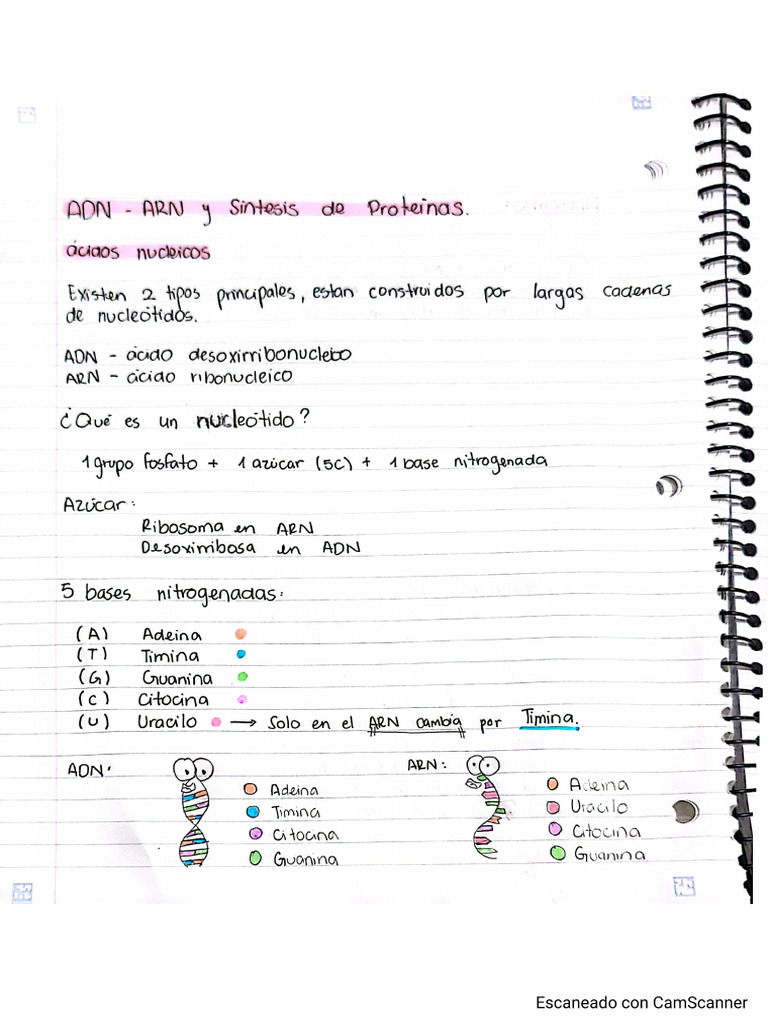 ADN - ARN y Síntesis de Proteínas.
ácidos nucleicos
Existen 2 tipos principales, estan construidos por largas cadenas
de nucleótidos.
ADN - ácido desoxirribonucleico
ARN - ácido ribonucleico
¿Qué es un nucleótido?
1 grupo fosfato + 1 azúcar (5C) + 1 base nitrogenada
Azúcar:
Ribosoma en ARN
Desoxirribosa en ADN
5 bases nitrogenadas:
(A) Adeina
(T) Timina
(G) Guanina
(C) Citocina
(U) Uracilo → Solo en el ARN cambia por Timina.
ADN: ARN:
Adeina Adeina
Timina Uracilo
Citocina Citocina
Guanina Guanina
Escaneado con CamScanner